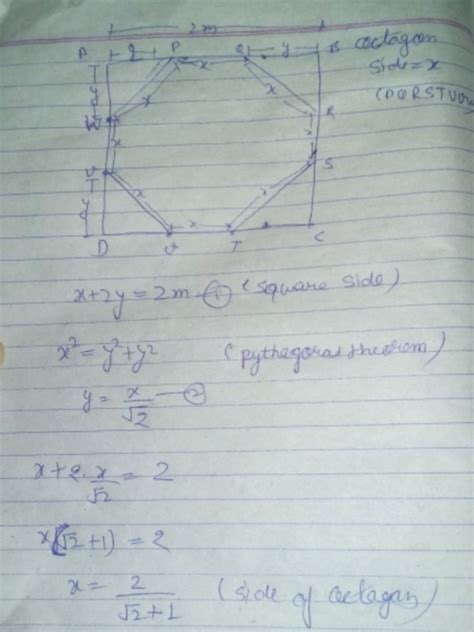 2m
A y P x Q y B octagon
side = x
y x x R
W
x x
V S
y x x
D U x T C
x+2y = 2m — ① (square side)
x² = y²+y² (pythagoras theorem)
y = x/√2 — ②
x+2·x/√2 = 2
x(√2+1) = 2
x = 2/√2+1 (side of octagon)